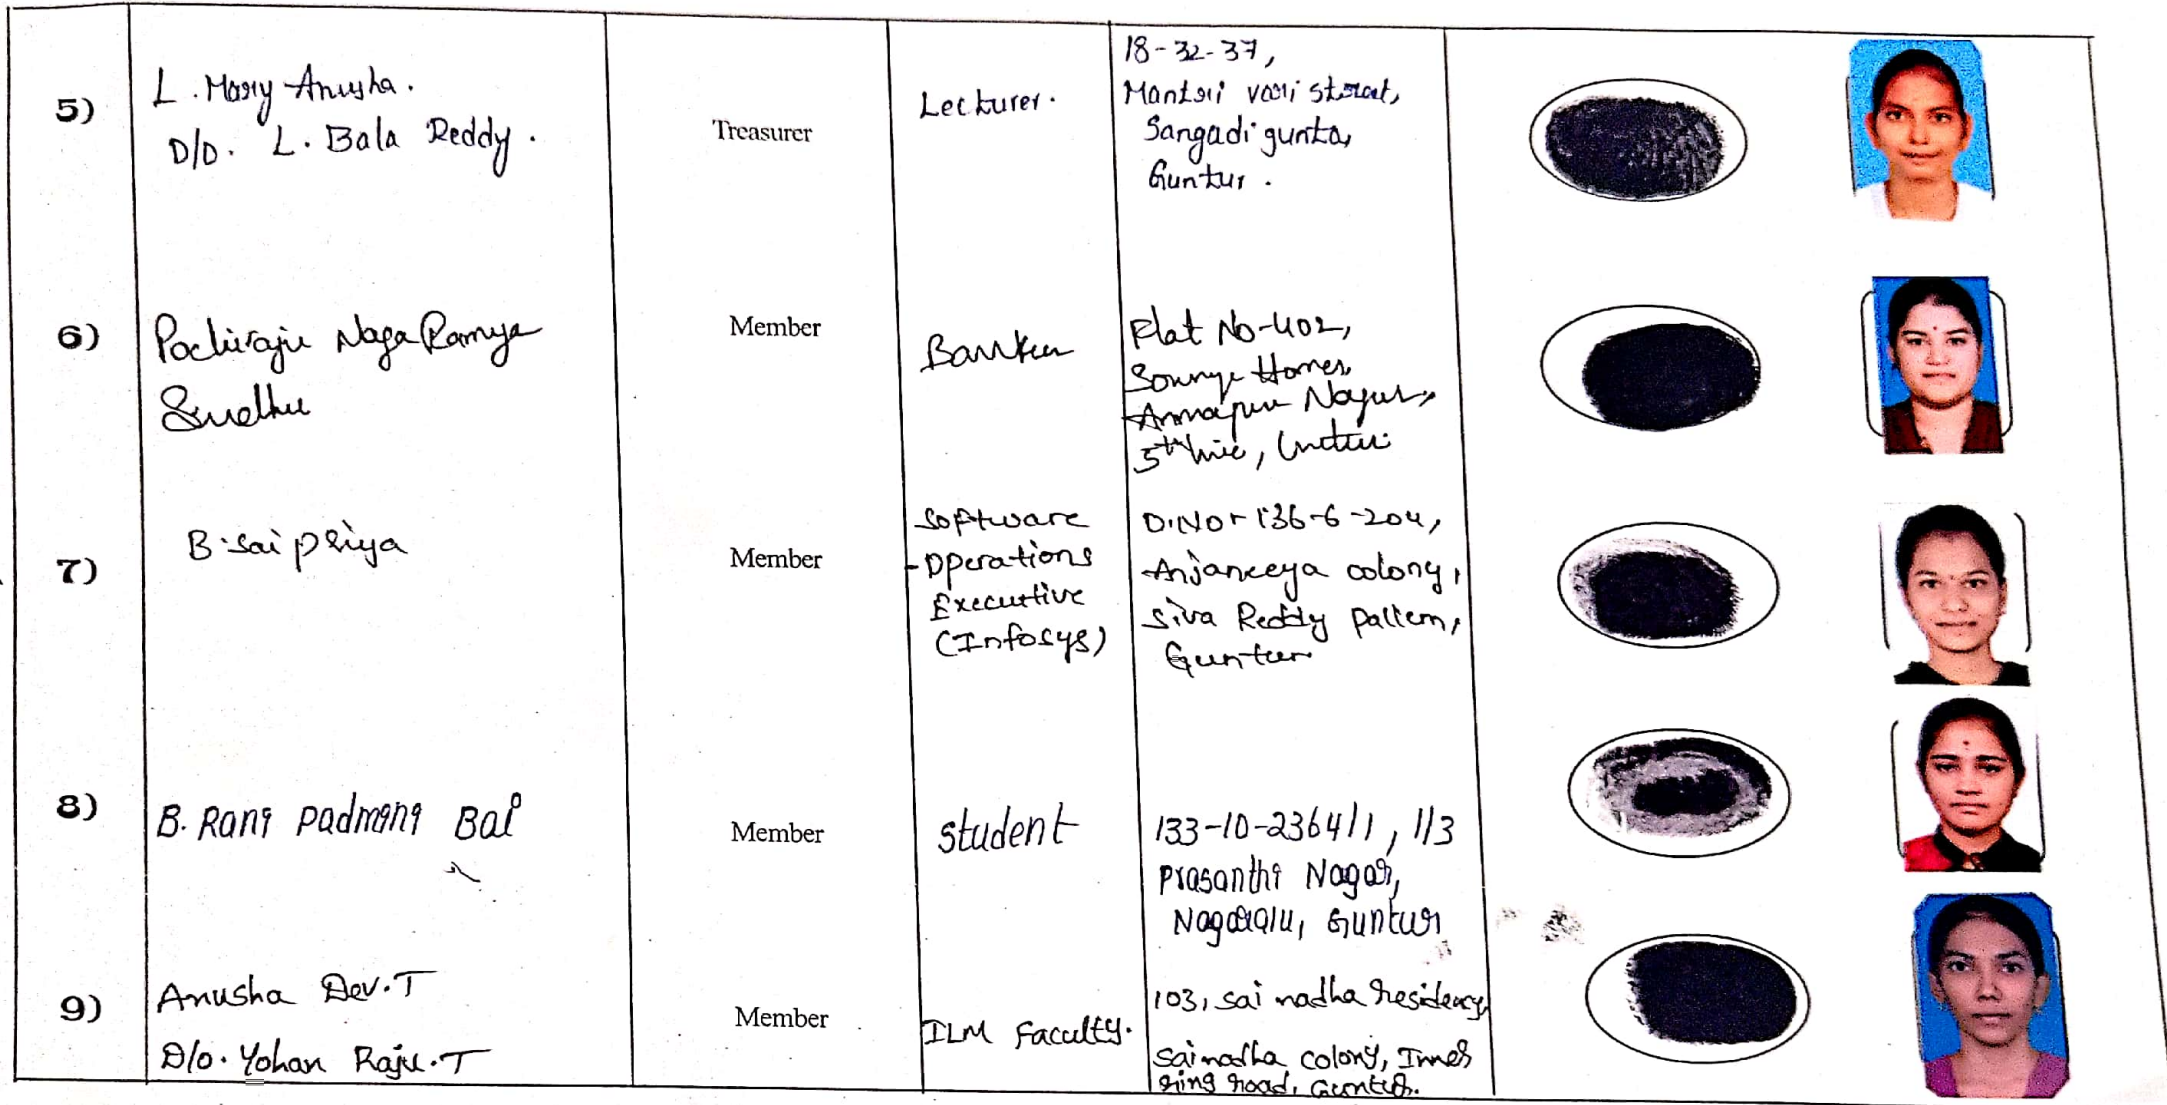 5)
L. Mary Anusha.
D/O. L. Bala Reddy.
Treasurer
Lecturer.
18-32-37,
Mantri vari street,
Sangadi gunta,
Guntur.
6)
Pochiraju Naga Ramya
Sindhu
Member
Banker
Flat No-402,
Sowmya Homes,
Annapurna Nagar,
5th line, Guntur.
7)
B. Sai priya
Member
Software
Operations
Executive
(Infosys)
D.No- 136-6-204,
Anjaneeya colony,
Siva Reddy Pallem,
Guntur
8)
B. Rani Padmani Bai
Member
student
133-10-2364/1, 1/3
Prasanthi Nagar,
Nagaralu, Guntur
9)
Anusha Dev.T
D/o. Yohan Raju.T
Member
ILM Faculty.
103, Sai nadha residency,
Sainadha colony, Inner
ring road, Guntur.